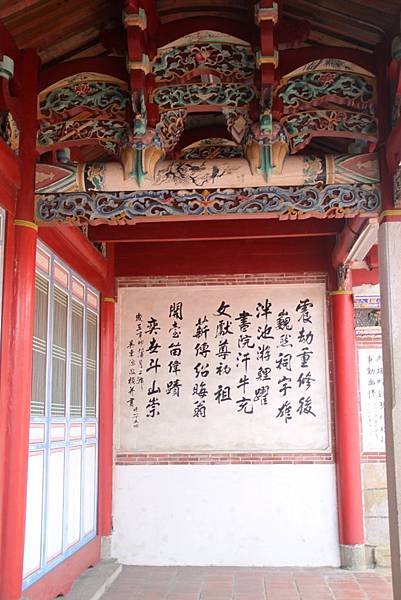 震劫重修後
巍然祠宇雄
泮池游鯉躍
書院汗牛充
文獻尊初祖
薪傳紹晦翁
開臺茁偉蹟
奕世斗山崇